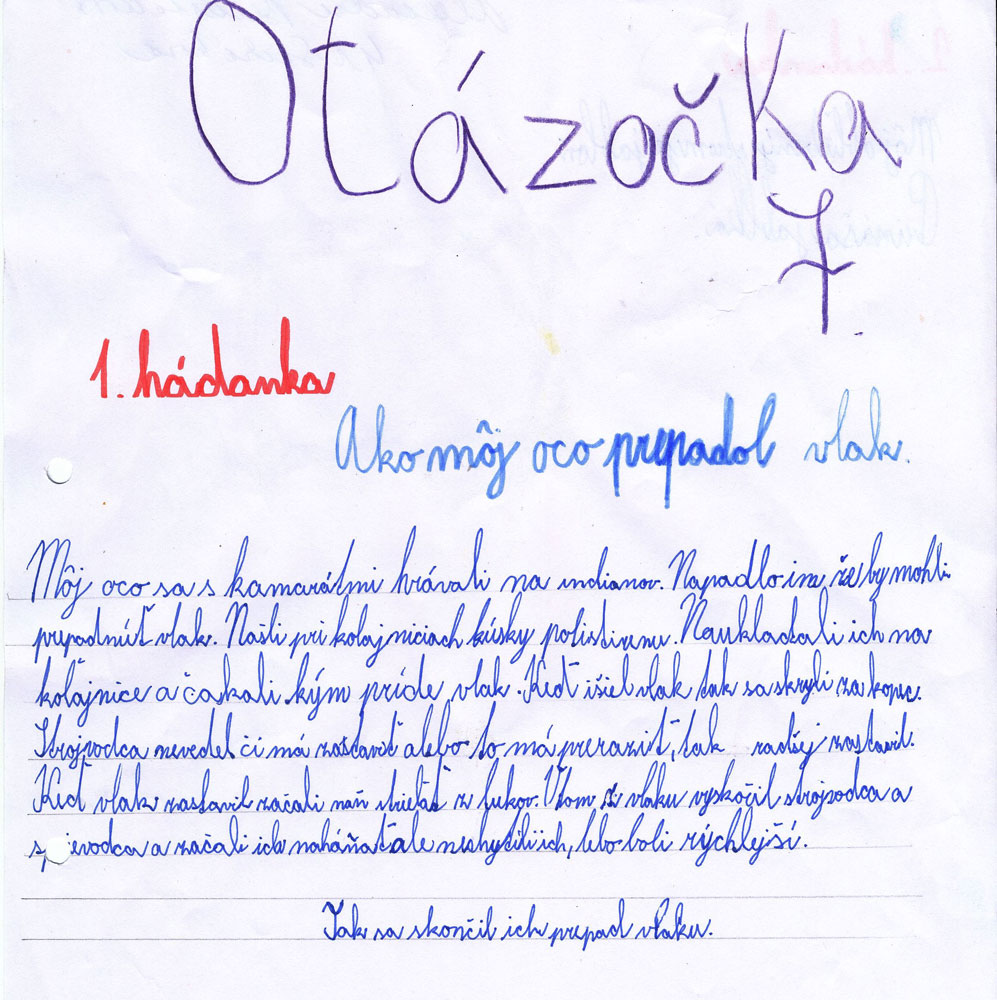 Otázočka
7.
1. hádanka
Ako môj oco prepadol vlak.
Môj oco sa s kamarátmi hrávali na indianov. Napadlo im, že by mohli
prepadnúť vlak. Našli pri kolajniciach kúsky polistirenu. Naukladali ich na
koľajnice a čakali kým príde vlak. Keď išiel vlak tak sa skryli za kopec.
Strojvodca nevedel či má zastaviť alebo to má preraziť, tak radšej zastavil.
Keď vlak zastavil začali naň strielať z lukov. Vtom z vlaku vyskočil strojvodca a
sprievodca a začali ich naháňať ale nechytili ich, lebo boli rýchlejší.
Tak sa skončil ich prepad vlaku.